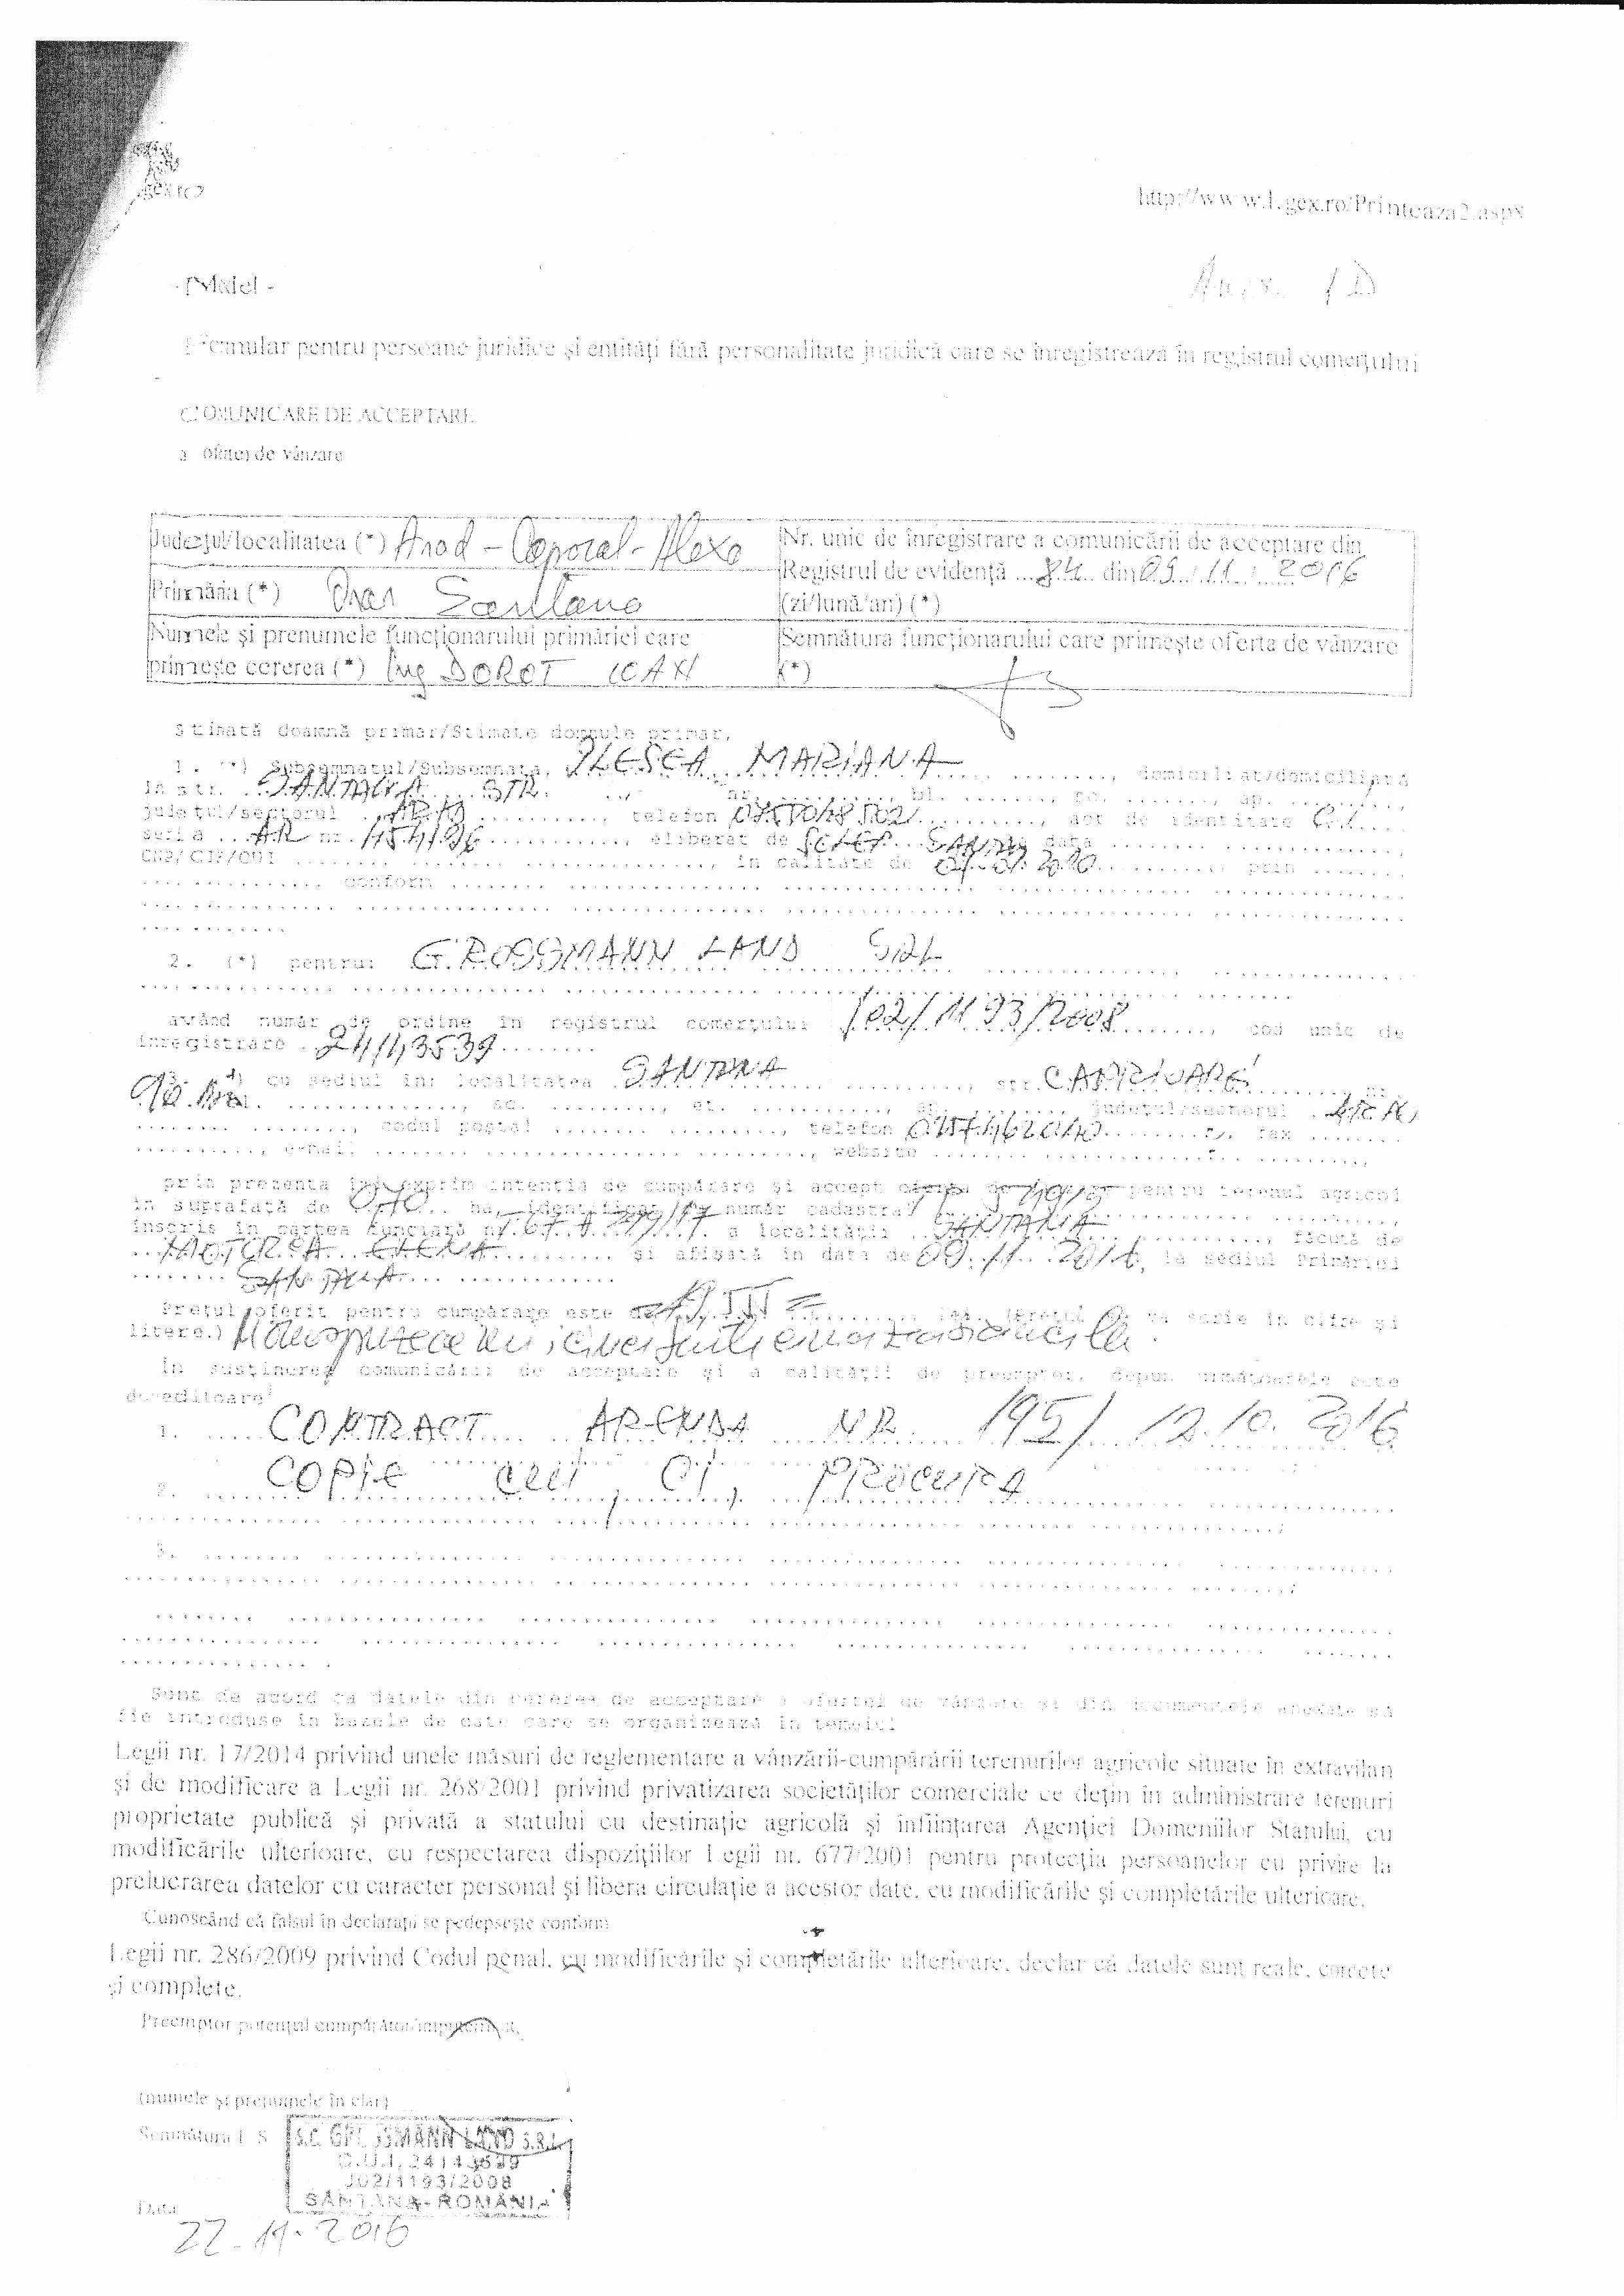 http://www.legex.ro/Printeaza2.aspx
- Model -
1D
Formular pentru persoane juridice și entități fără personalitate juridică care se înregistrează în registrul comerțului
COMUNICARE DE ACCEPTARE
a ofertei de vânzare
Județul/localitatea (*) Arad - Caporal - Alexa
Nr. unic de înregistrare a comunicării de acceptare din
Registrul de evidență ...84... din 09/11/2016
(zi/lună/an) (*)
Primăria (*) Oraș Santana
Numele și prenumele funcționarului primăriei care
primește cererea (*) Ing DOROT IOAN
Semnătura funcționarului care primește oferta de vânzare
(*)
Stimată doamnă primar/Stimate domnule primar,
1. (*) Subsemnatul/Subsemnata, ILESEA MARIANA ........, domiciliat/domiciliată
în str. SANTANA STR. ..., nr. ........, bl. ......., sc. ......., ap. ........,
județul/sectorul ..........., telefon ..........., act de identitate C.I....,
seria ...AR nr. ............, eliberat de ... data ........
CNP/CIF/CUI .............................., în calitate de ..........., prin ........
............... conform ........
2. (*) pentru: GROSSMANN LAND SRL
având număr de ordine în registrul comerțului J02/1193/2008 ........, cod unic de
înregistrare ..24143539........
cu sediul în: localitatea SANTANA ..............., str. CĂPRIOAREI
........, sc. ........., et. ..........., ap. ........., județul/sectorul
........, codul poștal ........ ........., telefon 0257462040........, fax ........
.........., e-mail ........, website ........
prin prezenta îmi exprim intenția de cumpărare și accept oferta de vânzare pentru terenul agricol
în suprafață de ... ha, identificat cu număr cadastral
înscris în cartea funciară nr. ... a localității ..SANTANA .........., făcută de
ELENA .......... și afișată în data de 09.11.2016, la sediul Primăriei
........ SANTANA ...
Prețul oferit pentru cumpărare este de ... lei. (Prețul se va scrie în cifre și
litere.)
În susținerea comunicării de acceptare și a calității de preemptor, depun următoarele acte
doveditoare:
1. CONTRACT ARENDA NR 195/ 12.10.2016
2. COPIE CUI, CI, PROCURA
3. ........
Sunt de acord ca datele din cererea de acceptare a ofertei de vânzare și din documentele anexate să
fie introduse în bazele de date care se organizează în temeiul
Legii nr. 17/2014 privind unele măsuri de reglementare a vânzării-cumpărării terenurilor agricole situate în extravilan
și de modificare a Legii nr. 268/2001 privind privatizarea societăților comerciale ce dețin în administrare terenuri
proprietate publică și privată a statului cu destinație agricolă și înființarea Agenției Domeniilor Statului, cu
modificările ulterioare, cu respectarea dispozițiilor Legii nr. 677/2001 pentru protecția persoanelor cu privire la
prelucrarea datelor cu caracter personal și libera circulație a acestor date, cu modificările și completările ulterioare.
Cunoscând că falsul în declarații se pedepsește conform
Legii nr. 286/2009 privind Codul penal, cu modificările și completările ulterioare, declar că datele sunt reale, corecte
și complete.
Preemptor potențial cumpărător/împuternicit,
(numele și prenumele în clar)
Semnătura L.S.
S.C. GROSSMANN LAND S.R.L.
C.U.I. 24143539
J02/1193/2008
SANTANA - ROMANIA
Data
22.11.2016